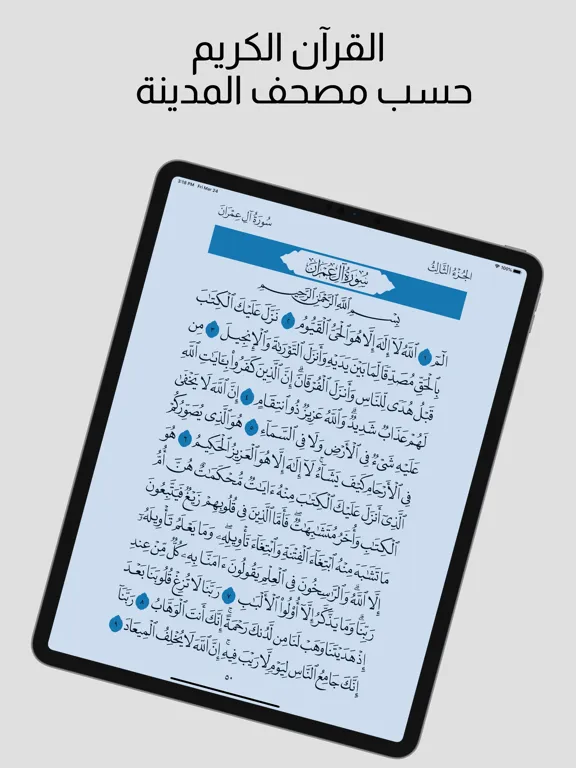 القرآن الكريم
حسب مصحف المدينة
3:16 PM Fri Mar 24
100%
سُورَةُ آلِ عِمْرَانَ
الجُزْءُ الثَّالِثُ
سُورَةُ آلِ عِمْرَانَ
بِسْمِ ٱللَّهِ ٱلرَّحْمَٰنِ ٱلرَّحِيمِ
الٓمٓ ١ ٱللَّهُ لَآ إِلَٰهَ إِلَّا هُوَ ٱلْحَىُّ ٱلْقَيُّومُ ٢ نَزَّلَ عَلَيْكَ ٱلْكِتَٰبَ
بِٱلْحَقِّ مُصَدِّقًا لِّمَا بَيْنَ يَدَيْهِ وَأَنزَلَ ٱلتَّوْرَىٰةَ وَٱلْإِنجِيلَ ٣ مِن
قَبْلُ هُدًى لِّلنَّاسِ وَأَنزَلَ ٱلْفُرْقَانَۗ إِنَّ ٱلَّذِينَ كَفَرُوا۟ بِـَٔايَٰتِ ٱللَّهِ
لَهُمْ عَذَابٌ شَدِيدٌۗ وَٱللَّهُ عَزِيزٌ ذُو ٱنتِقَامٍ ٤ إِنَّ ٱللَّهَ لَا يَخْفَىٰ
عَلَيْهِ شَىْءٌ فِى ٱلْأَرْضِ وَلَا فِى ٱلسَّمَآءِ ٥ هُوَ ٱلَّذِى يُصَوِّرُكُمْ
فِى ٱلْأَرْحَامِ كَيْفَ يَشَآءُۚ لَآ إِلَٰهَ إِلَّا هُوَ ٱلْعَزِيزُ ٱلْحَكِيمُ ٦ هُوَ
ٱلَّذِىٓ أَنزَلَ عَلَيْكَ ٱلْكِتَٰبَ مِنْهُ ءَايَٰتٌ مُّحْكَمَٰتٌ هُنَّ أُمُّ
ٱلْكِتَٰبِ وَأُخَرُ مُتَشَٰبِهَٰتٌۖ فَأَمَّا ٱلَّذِينَ فِى قُلُوبِهِمْ زَيْغٌ فَيَتَّبِعُونَ
مَا تَشَٰبَهَ مِنْهُ ٱبْتِغَآءَ ٱلْفِتْنَةِ وَٱبْتِغَآءَ تَأْوِيلِهِۦۗ وَمَا يَعْلَمُ تَأْوِيلَهُۥٓ
إِلَّا ٱللَّهُۗ وَٱلرَّٰسِخُونَ فِى ٱلْعِلْمِ يَقُولُونَ ءَامَنَّا بِهِۦ كُلٌّ مِّنْ عِندِ
رَبِّنَاۗ وَمَا يَذَّكَّرُ إِلَّآ أُو۟لُوا۟ ٱلْأَلْبَٰبِ ٧ رَبَّنَا لَا تُزِغْ قُلُوبَنَا بَعْدَ
إِذْ هَدَيْتَنَا وَهَبْ لَنَا مِن لَّدُنكَ رَحْمَةًۚ إِنَّكَ أَنتَ ٱلْوَهَّابُ ٨ رَبَّنَآ
إِنَّكَ جَامِعُ ٱلنَّاسِ لِيَوْمٍ لَّا رَيْبَ فِيهِۚ إِنَّ ٱللَّهَ لَا يُخْلِفُ ٱلْمِيعَادَ ٩
٥٠